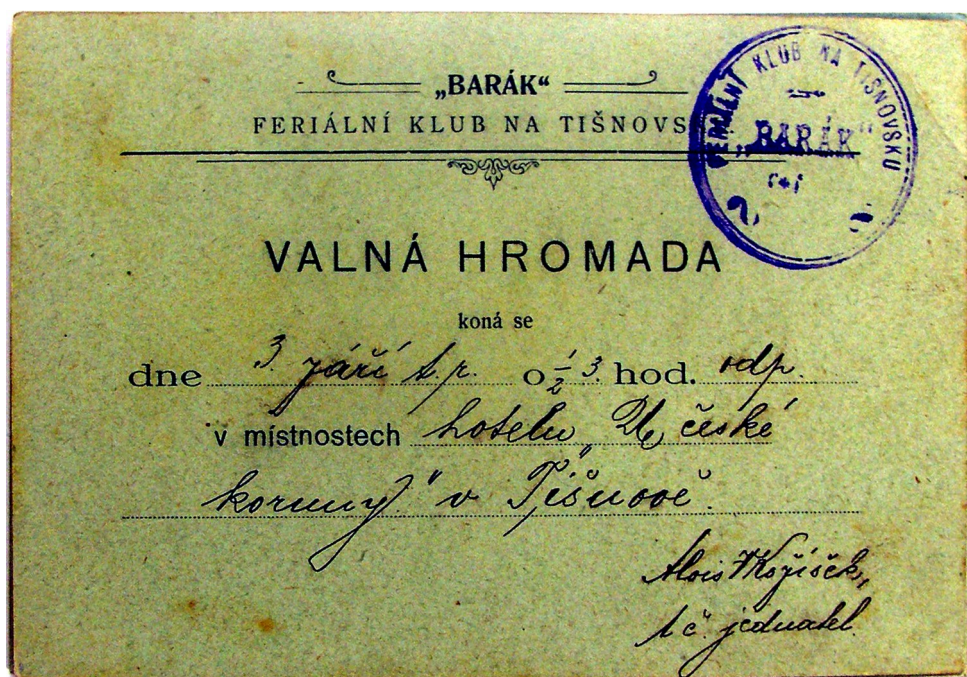 „BARÁK“
FERIÁLNÍ KLUB NA TIŠNOVSKU.
FERIÁLNÍ KLUB NA TIŠNOVSKU
„BARÁK“
VALNÁ HROMADA
koná se
dne 3. září t. r. o ½ 3. hod. odp.
v místnostech hotelu „U české
koruny“ v Tišnově.
Alois
t. č. jednatel.